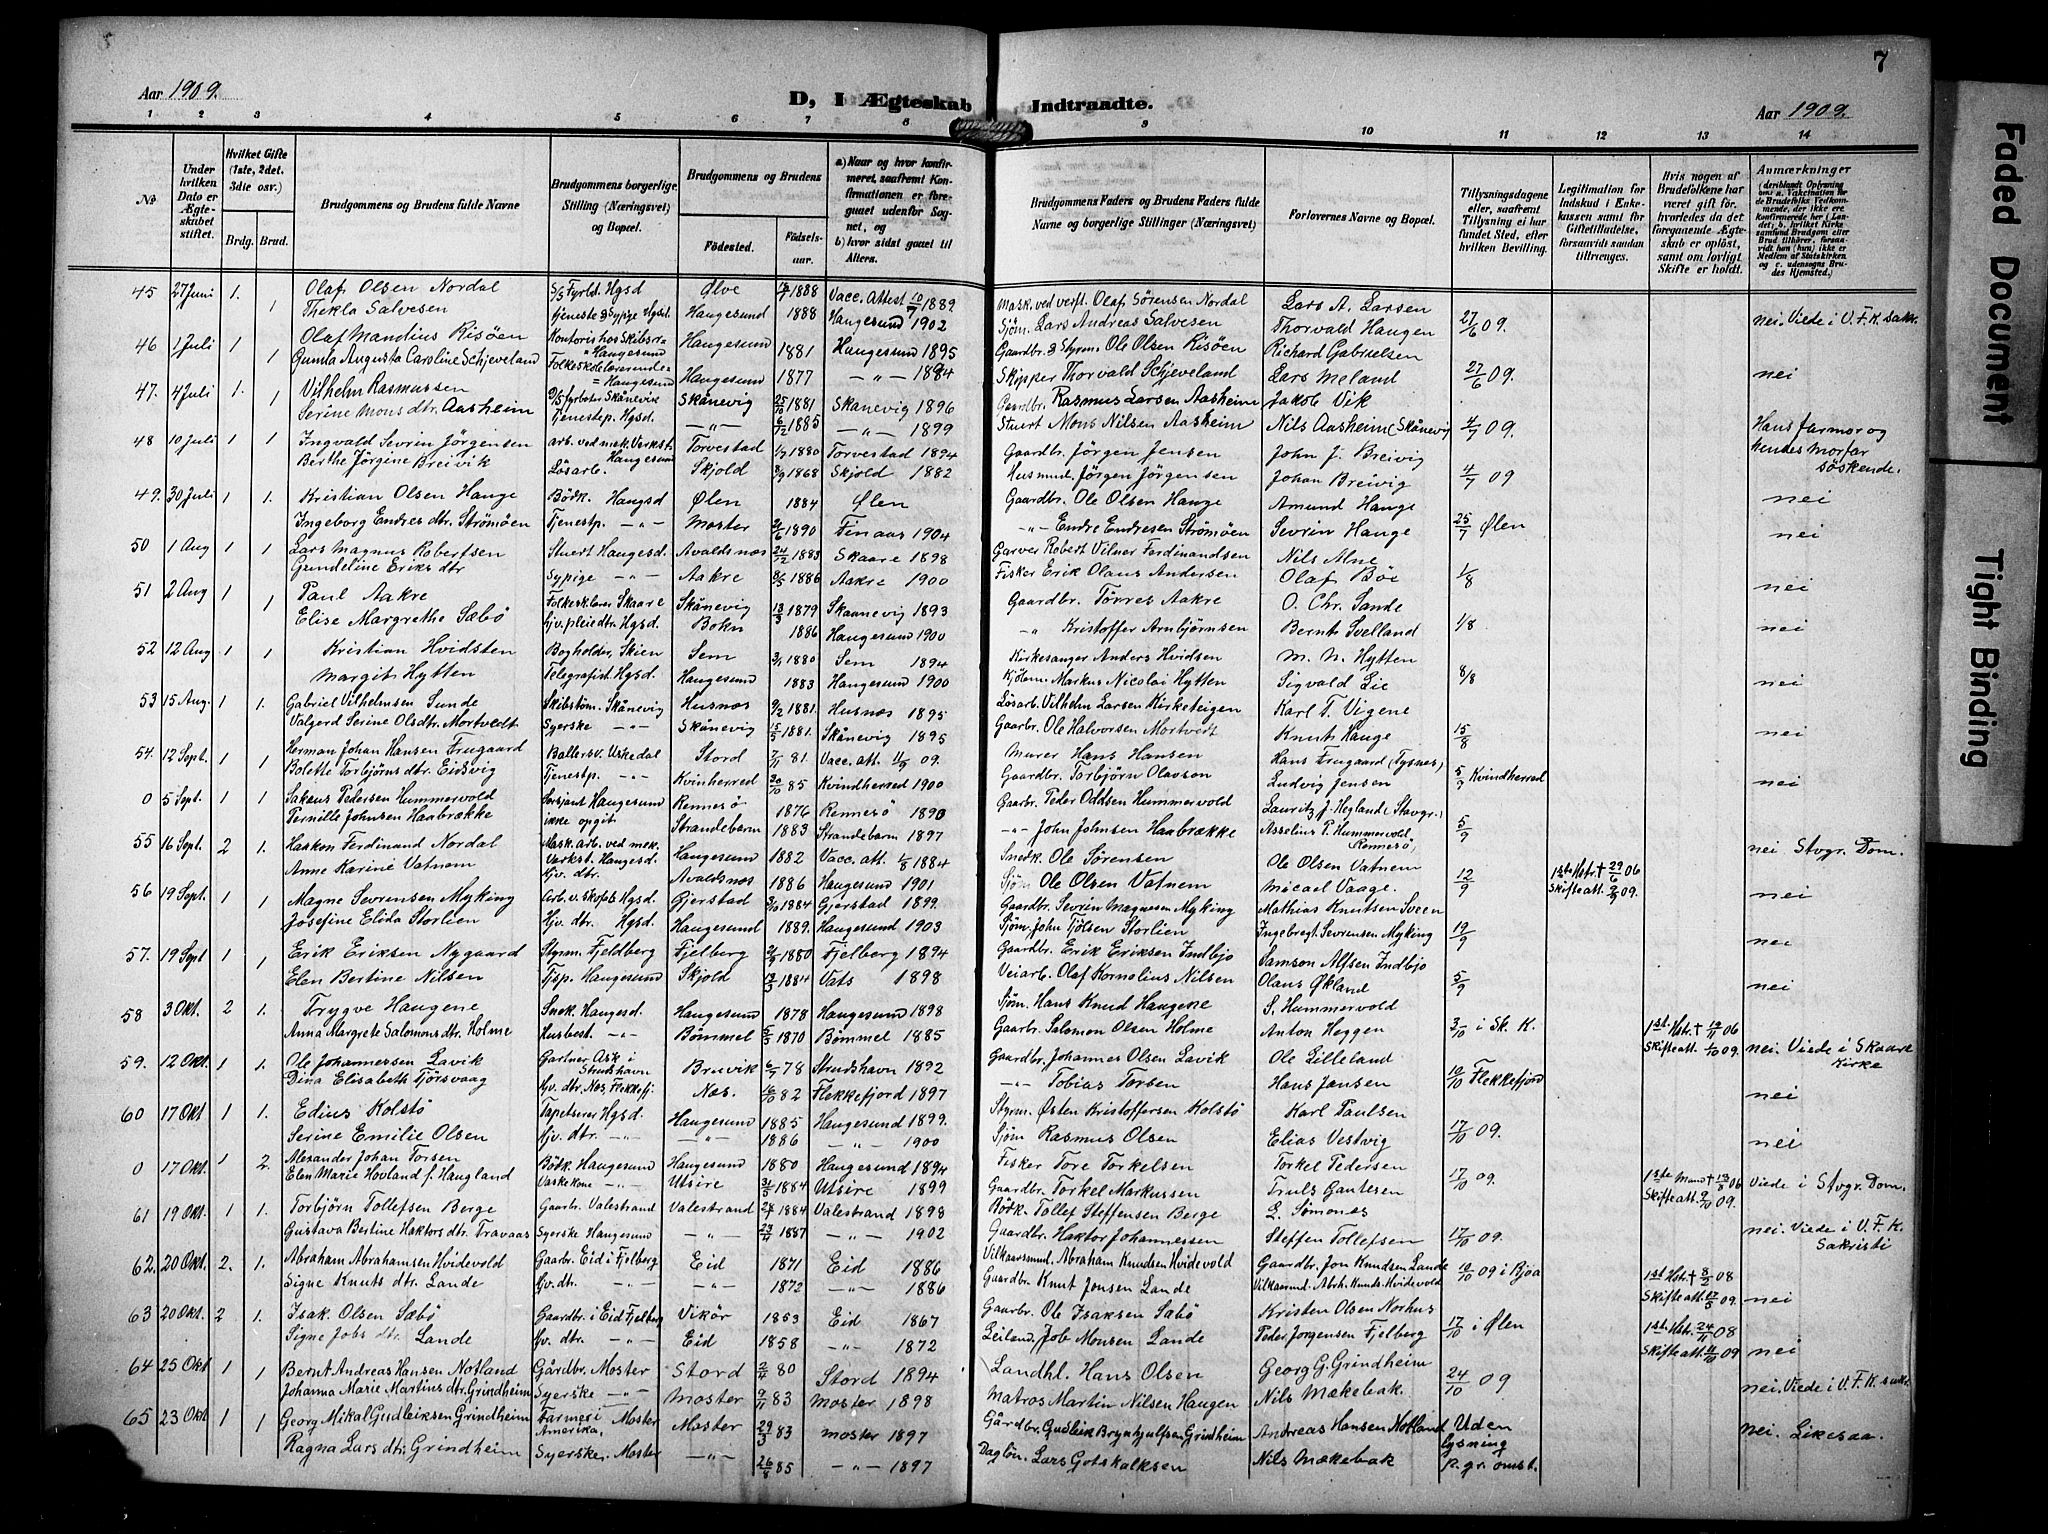 7
Aar 1909.
D, I Ægteskab Indtraadte.
Aar 1909.
1 2 3 4 5 6 7 8 9 10 11 12 13 14
No
Under hvilken Dato er Ægteskabet stiftet.
Hvilket Gifte (1ste, 2det. 3die osr.)
Brdg. Brud.
Brudgommens og Brudens fulde Navne
Brudgommens borgerlige Stilling (Næringsvei) og Bopæl.
Brudgommens og Brudens
Födested.
Födselsaar.
a) Naar og hvor konfirmeret, saafremt Konfirmationen er foregaaet udenfor Sognet, og
b) hvor sidst gaaet til Alters.
Brudgommens Faders og Brudens Faders fulde Navne og borgerlige Stillinger (Næringsvei)
Forlovernes Navne og Bopæl.
Tillysningsdagene eller, saafremt Tillysning ei har fundet Sted, efter hvilken Bevilling.
Legitimation for Indskud i Enkekassen samt for Giftetilladelse, forsaavidt saadan tiltrænges.
Hvis nogen af Brudefolkene har været gift før, hvorledes da det foregaaende Ægteskab er opløst, samt om lovligt Skifte er holdt.
Anmærkninger
45 27 Juni 1. Olaf Olsen Nordal S/S Fyrbd. Hgsd Ølve 1888 Vacc. Attest 10/7 1889 Mask. ved verft. Olaf Sörensen Nordal Lars A. Larsen
1 Thekla Salvesen Tjeneste & Sypige Hgsd. Haugesund 1888 Haugesund 1902 Sjöm. Lars Andreas Salvesen Thorvald Haugen 27/6 09. nei. Viede i V.F.K. sakr.
46 1 Juli 1 Olaf Mandius Risöen Kontorist hos Skibsr. Haugesund Haugesund 1881 Haugesund 1895 Gaardbr. & Styrm. Ole Olsen Risöen Richard Gabrielsen
1 Gunda Augusta Caroline Schjeveland Folkeskolelærerinde Haugesund Haugesund 1877 — „ — 1884 Skipper Thorvald Schjeveland Lars Meland 27/6 09. nei
47. 4 Juli 1. Vilhelm Rasmussen D/S fyrböter Skånevik Skånevig 25/10 1881 Skanevig 1896 Gaardbr. Rasmus Larsen Aasheim Jakob Vik
1 Serine Mons dtr Aasheim Tjenestep. Hgsd. — „ — 6/12 1885 — „ — 1899 Stuert Mons Nilsen Aasheim Nils Aasheim (Skånevig 4/7 09. Hans farmor og hendes morfar söskende.
48 10 Juli 1 1 Ingvald Sevrin Jörgensen arb. ved mek. Verkst. Haugesund Torvestad 1880 Torvestad 1894 Gaardbr. Jörgen Jensen John J. Breivig
Berthe Jörgine Breivik Lösarb. Skjold 1868 Skjold 1882 Husmd. Jörgen Jörgensen Johan Breivig 4/7 09 nei
49. 30 Juli 1 1. Kristian Olsen Hauge Bödk. Haugsd Ølen 1884 Ølen Gaardbr. Ole Olsen Hauge Amund Hauge
Ingeborg Endres dtr. Strömöen Tjenestp. — „ — Moster 1890 Finaas 1904 — „ — Endre Endresen Strömöen Sevrin Hauge 25/7 Ølen nei
50 1 Aug 1 1 Lars Magnus Robertsen Stuert Haugesd. Avaldsnes 24/2 1883 Skaare 1898 Garver Robert Vilner Ferdinandsen Nils Alne
Gundeline Eriks dtr Sypige — „ — Aakre 8/5 1886 Aakre 1900 Fisker Erik Olaus Andersen Olaf Böe 1/8 nei
51 2 Aug 1 Paul Aakre Folkesk.lærer Skaare Skånevig 13/3 1879 Skaanevig 1893 Gaardbr. Törres Aakre O. Chr. Sande
1 Elise Margrethe Sæbö Hjv. pleiedtr. Hgsd. Bokn 1886 Haugesund 1900 — „ Kristoffer Arnbjörnsen Bernts Svelland 1/8 nei
52 12 Aug 1 1 Kristian Hvidsten Bogholder, Skien Sem 1880 Sem 1894 Kirkesanger Anders Hvidsen M. N. Hytten
Margit Hytten Telegrafist Hgsd. Haugesund 1883 Haugesund 1900 Kjöbm. Markus Nicolai Hytten Sigvald Lie 8/8 nei
53 15 Aug. 1 1. Gabriel Vilhelmsen Sunde Skibstöm. Skånevig Husnæs 9/2 1881. Husnæs 1895 Lösarb. Vilhelm Larsen Kirketeigen Karl T. Vigene
Valgerd Serine Olsdtr. Mortvedt Syerske — „ — Skånevig 15/5 1881. Skånevig 1895 Gaarbr. Ole Halvorsen Mortvedt Knut Hauge 15/8 nei
54. 12 Sept. 1 1 Herman Johan Hansen Frugaard Ballersv. Uskedal Stord 7/11 81. Vacc. att. 09. Murer Hans Hansen Hans Frugaard (Tysnes)
Bolette Torbjörns dtr. Eidsvig Tjenestp. — „ — Kvinherred 30/10 85 Kvindherred 1900 Gaardbr. Torbjörn Olavson Ludvig Jensen 5/9 Kvindherred nei
0 5 Sept. 1 1 Sakeus Pedersen Hummervold Sersjant Haugesund Rennesö 1876 Rennesö 1890 Gaarbr. Peder Oddsen Hummervold Lauritz J. Hegland (Stavgr.)
Pernille Johnsen Haabrække ikke opgit Strandebarm 1883 Strandebarm 1897 — „ — John Johnsen Haabrække Asselius P. Hummervold Rennesö, 5/9 nei Stvgr. Dom.
55 16 Sept. 2 1. Haakon Ferdinand Nordal Mask. arb. ved mek. Verkst. Haugesd. Haugesund 1882 Vacc. att. 1/8 1884 Snedk. Ole Sörensen Ole Olsen Vatnem 1ste Hstr † 29/6 06
Anne Karine Vatnem Hjv. dtr. Avaldsnæs 1886 Haugesund 1901 Sjöm. Ole Olsen Vatnem Micael Vaage. 12/9 Skifteatt. 09. nei
56 19 Sept. 1 1 Magne Sevrensen Myking Arb. v. Skofab. Hgsd. Gjerstad 1884 Gjerstad 1899. Gaardbr. Sevrin Magnesen Myking Mathias Knutsen Sveen
Josefine Elida Storlien Hjv. dtr. Hgsd. Haugesund 1889. Haugesund 1903 Sjöm. John Tjölsen Storlien Ingebregt Sevrensen Myking 19/9 nei
57. 19 Sept 1 1 Erik Eriksen Nygaard Styrm. Fjeldberg Fjelberg 1880 Fjelberg 1894 Gaardbr. Erik Eriksen Indbjo Samson Alfsen Indbjo
Elen Bertine Nilsen Tjsp. Haugesund Skjold 13/3 1884 Vats 1898 Veiarb. Olaf Kornelius Nilsen Olaus Økland 5/9 nei
58 3 Okt. 2 1. Trygve Haugene Snek. Haugesd. Haugesund 1878 Haugesund 1898 Sjöm. Hans Knud Haugene S. Hummervold
Anna Margrete Salomons dtr. Holme Husbest. — „ — Bömmel 1870 Bömmel 1885 Gaarbr. Salomon Olsen Holme Anton Heggen 3/10 i Sk. K. 1st. Hstr † 06 Skifteatt. 1/10 09. nei. Viede i Skaare Kirke
59. 12 Okt. 1 1. Ole Johannessen Lavik Gartner Ask i Strudshavn Bruvik 78 Strudshavn 1892 Gaardbr. Johannes Olsen Lavik Ole Lilleland
Dina Elisabeth Tjörsvaag Hjv. dtr. Nes, Flekkefj. Næs. 16/10 82 Flekkefjord 1897 — „ — Tobias Torsen Hans Jansen 10/10 Flekkefjord nei
60 17 Okt 1 1. Edius Kolstö Tapetserer Hgsd. Haugesund 1885 Haugesund 1899. Styrm. Østen Kristoffersen Kolstö Karl Paulsen
Serine Emilie Olsen Hjv. dtr. — „ — — „ — 1886 — „ — 1900 Sjöm Rasmus Olsen Elias Vestvig 17/10 09. nei
0 17 Okt. 1 2. Alexander Johan Torsen Bödk. Haugesund Haugesund 1880 Haugesund 1894 Fisker Tore Torkelsen Torkel Pedersen
Elen Marie Hovland f. Haugland Vaskekone — „ — Utsire 31/5 1884 Utsire 1899 Gaardbr. Torkel Markussen Truls Gautesen 17/10 09. 1ste Mand † 13/8 06 Skifteatt. 9/10 09. Viede i Stvgr. Dom.
61 19 Okt. 1 1. Torbjörn Tollefsen Berge Gaarbr. Valestrand Valestrand 1884 Valestrand 1898 Bödk. Tollef Steffensen Berge L. Simones
Gustava Bertine Haktors dtr. Travaas Syerske Haugesund — „ — 23/11 1887 — „ — 1902 Gaardbr. Haktor Johannessen Steffen Tollefsen 17/10 09. nei. Viede i V.F.K. Sakristi
62. 20 Okt. 2. 1. Abraham Abrahamsen Hvidevold Gaarbr. Eid i Fjelberg Eid 1871 Eid 1886 Vilkaarsmd. Abraham Knudsen Hvidevold Gaardbr. Jon Knudsen Lande
Signe Knuts dtr. Lande Hjv. dtr. — „ — 1872 — „ — 1886 Gaardbr. Knut Jonsen Lande Vilkaarmd. Abrh. Knuds. Hvidevold 10/10 09 i Bjoa 1st Hstr † 8/2 08 Skifteatt. 17/5 09. nei
63 20 Okt. 2 1. Isak Olsen Sæbö Gaardbr. i Eid Fjelberg Vikör 1853 Eid 1867 Gaarbr. Ole Isaksen Sæbö Kristen Olsen Norhus
Signe Jobs dtr. Lande Hv. dtr. — „ — Eid 1858 — „ 1872 Leiland. Job Monsen Lande Peder Jorgensen Fjelberg 17/10 i Ølen 1st Hstr. 24/11 08 Skifteatt. 09 nei
64 25 Okt 1 1 Bernt Andreas Hansen Notland Gårdbr. Moster Stord 2/4 80 Stord 1894 Landhl. Hans Olsen Georg G. Grindheim
Johanna Marie Martins dtr. Grindheim Syerske — „ — Moster 9/11 83 Moster 1898 Matros Martin Nilsen Haugen Nils Mækebak. 24/10 09 nei. Viede i V.F.K. sakr.
65 23 Okt 1 1 Georg Mikal Gudleiksen Grindheim Farmer i Amerika, Moster Moster 29/3 83 Moster 1897 Gårdbr. Gudleik Brynhjulfsen Grindheim Andreas Hansen Notland Uden lysning p. gr. omst.
Ragna Lars dtr. Grindheim Syerske. Moster — „ — 26/8 85 — „ — 1897 Daglön. Lars Gotskalksen Nils Mækebak nei. Likesaa.
Faded Document
Tight Binding